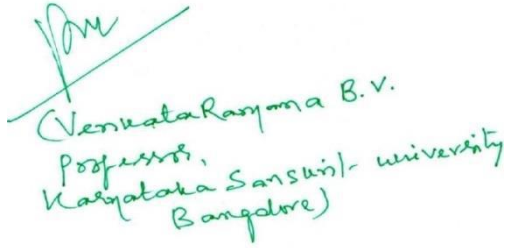 (VenkataRamana B.V.
Professor,
Karnataka Sanskrit university
Bangalore)